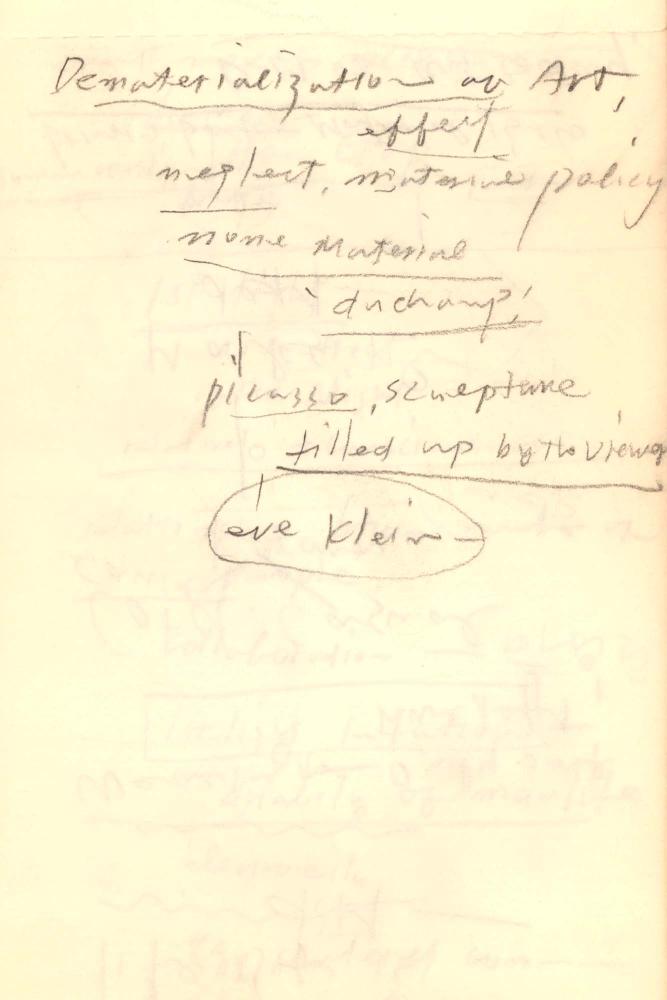 Dematerialization av Art,
effect
neglect, material policy
none material
duchamp!
picasso, sculpture
filled up by the viewer
eve Klein